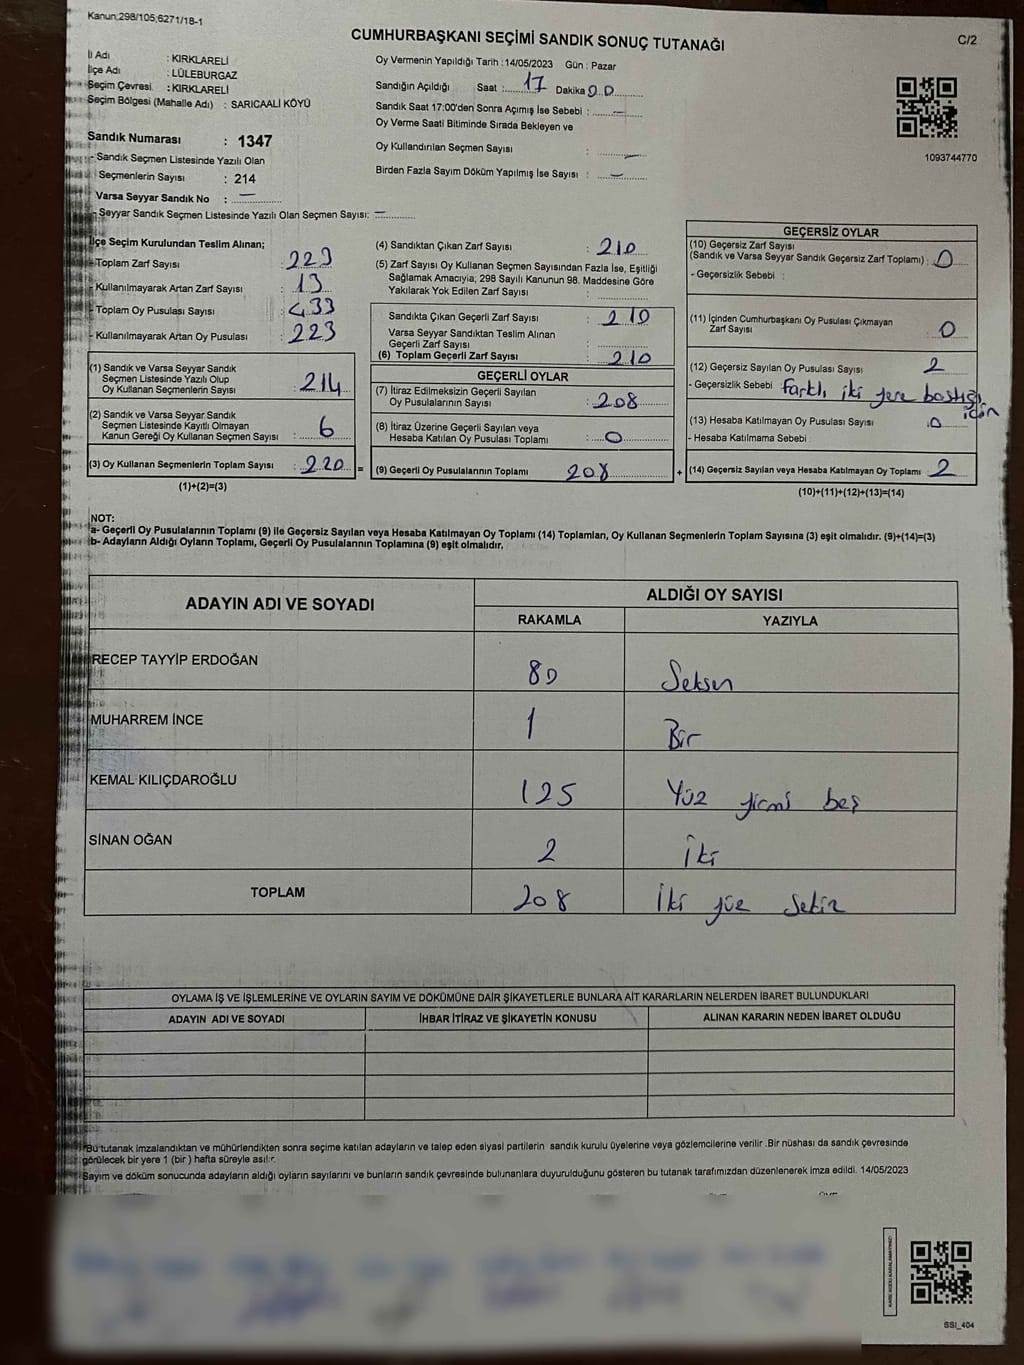 Kanun;298/105;6271/18-1
CUMHURBAŞKANI SEÇİMİ SANDIK SONUÇ TUTANAĞI
C/2
İl Adı : KIRKLARELİ
İlçe Adı : LÜLEBURGAZ
Seçim Çevresi : KIRKLARELİ
Seçim Bölgesi (Mahalle Adı) : SARICAALİ KÖYÜ
Oy Vermenin Yapıldığı Tarih :14/05/2023 Gün : Pazar
Sandığın Açıldığı Saat : 17 Dakika 00
Sandık Saat 17:00'den Sonra Açımış İse Sebebi : —
Oy Verme Saati Bitiminde Sırada Bekleyen ve
Oy Kullandırılan Seçmen Sayısı : —
Birden Fazla Sayım Döküm Yapılmış İse Sayısı : —
1093744770
Sandık Numarası : 1347
- Sandık Seçmen Listesinde Yazılı Olan
Seçmenlerin Sayısı : 214
Varsa Seyyar Sandık No : —
- Seyyar Sandık Seçmen Listesinde Yazılı Olan Seçmen Sayısı: —
İlçe Seçim Kurulundan Teslim Alınan;
- Toplam Zarf Sayısı : 223
- Kullanılmayarak Artan Zarf Sayısı : 13
- Toplam Oy Pusulası Sayısı : 433
- Kullanılmayarak Artan Oy Pusulası : 223
(1) Sandık ve Varsa Seyyar Sandık
Seçmen Listesinde Yazılı Olup
Oy Kullanan Seçmenlerin Sayısı : 214
(2) Sandık ve Varsa Seyyar Sandık
Seçmen Listesinde Kayıtlı Olmayan
Kanun Gereği Oy Kullanan Seçmen Sayısı : 6
(3) Oy Kullanan Seçmenlerin Toplam Sayısı : 220 =
(1)+(2)=(3)
(4) Sandıktan Çıkan Zarf Sayısı : 210
(5) Zarf Sayısı Oy Kullanan Seçmen Sayısından Fazla İse, Eşitliği
Sağlamak Amacıyla; 298 Sayılı Kanunun 98. Maddesine Göre
Yakılarak Yok Edilen Zarf Sayısı :
Sandıkta Çıkan Geçerli Zarf Sayısı : 210
Varsa Seyyar Sandıktan Teslim Alınan
Geçerli Zarf Sayısı :
(6) Toplam Geçerli Zarf Sayısı : 210
GEÇERLİ OYLAR
(7) İtiraz Edilmeksizin Geçerli Sayılan
Oy Pusulalarının Sayısı : 208
(8) İtiraz Üzerine Geçerli Sayılan veya
Hesaba Katılan Oy Pusulası Toplamı : 0
(9) Geçerli Oy Pusulalarının Toplamı 208 +
GEÇERSİZ OYLAR
(10) Geçersiz Zarf Sayısı
(Sandık ve Varsa Seyyar Sandık Geçersiz Zarf Toplamı) : 0
- Geçersizlik Sebebi :
(11) İçinden Cumhurbaşkanı Oy Pusulası Çıkmayan
Zarf Sayısı 0
(12) Geçersiz Sayılan Oy Pusulası Sayısı 2
- Geçersizlik Sebebi : Farklı iki yere bastığı
için
(13) Hesaba Katılmayan Oy Pusulası Sayısı : 0
- Hesaba Katılmama Sebebi :
(14) Geçersiz Sayılan veya Hesaba Katılmayan Oy Toplamı 2
(10)+(11)+(12)+(13)=(14)
NOT:
a- Geçerli Oy Pusulalarının Toplamı (9) ile Geçersiz Sayılan veya Hesaba Katılmayan Oy Toplamı (14) Toplamları, Oy Kullanan Seçmenlerin Toplam Sayısına (3) eşit olmalıdır. (9)+(14)=(3)
b- Adayların Aldığı Oyların Toplamı, Geçerli Oy Pusulalarının Toplamına (9) eşit olmalıdır.
ADAYIN ADI VE SOYADI ALDIĞI OY SAYISI
RAKAMLA YAZIYLA
RECEP TAYYİP ERDOĞAN 80 Seksen
MUHARREM İNCE 1 Bir
KEMAL KILIÇDAROĞLU 125 Yüz yirmi beş
SİNAN OĞAN 2 İki
TOPLAM 208 İki yüz sekiz
OYLAMA İŞ VE İŞLEMLERİNE VE OYLARIN SAYIM VE DÖKÜMÜNE DAİR ŞİKAYETLERLE BUNLARA AİT KARARLARIN NELERDEN İBARET BULUNDUKLARI
ADAYIN ADI VE SOYADI İHBAR İTİRAZ VE ŞİKAYETİN KONUSU ALINAN KARARIN NEDEN İBARET OLDUĞU
Bu tutanak imzalandıktan ve mühürlendikten sonra seçime katılan adayların ve talep eden siyasi partilerin sandık kurulu üyelerine veya gözlemcilerine verilir .Bir nüshası da sandık çevresinde
görülecek bir yere 1 (bir ) hafta süreyle asılır.
Sayım ve döküm sonucunda adayların aldığı oyların sayılarını ve bunların sandık çevresinde bulunanlara duyurulduğunu gösteren bu tutanak tarafımızdan düzenlenerek imza edildi. 14/05/2023
KARE KODU KARALAMAYINIZ!
SSI_404